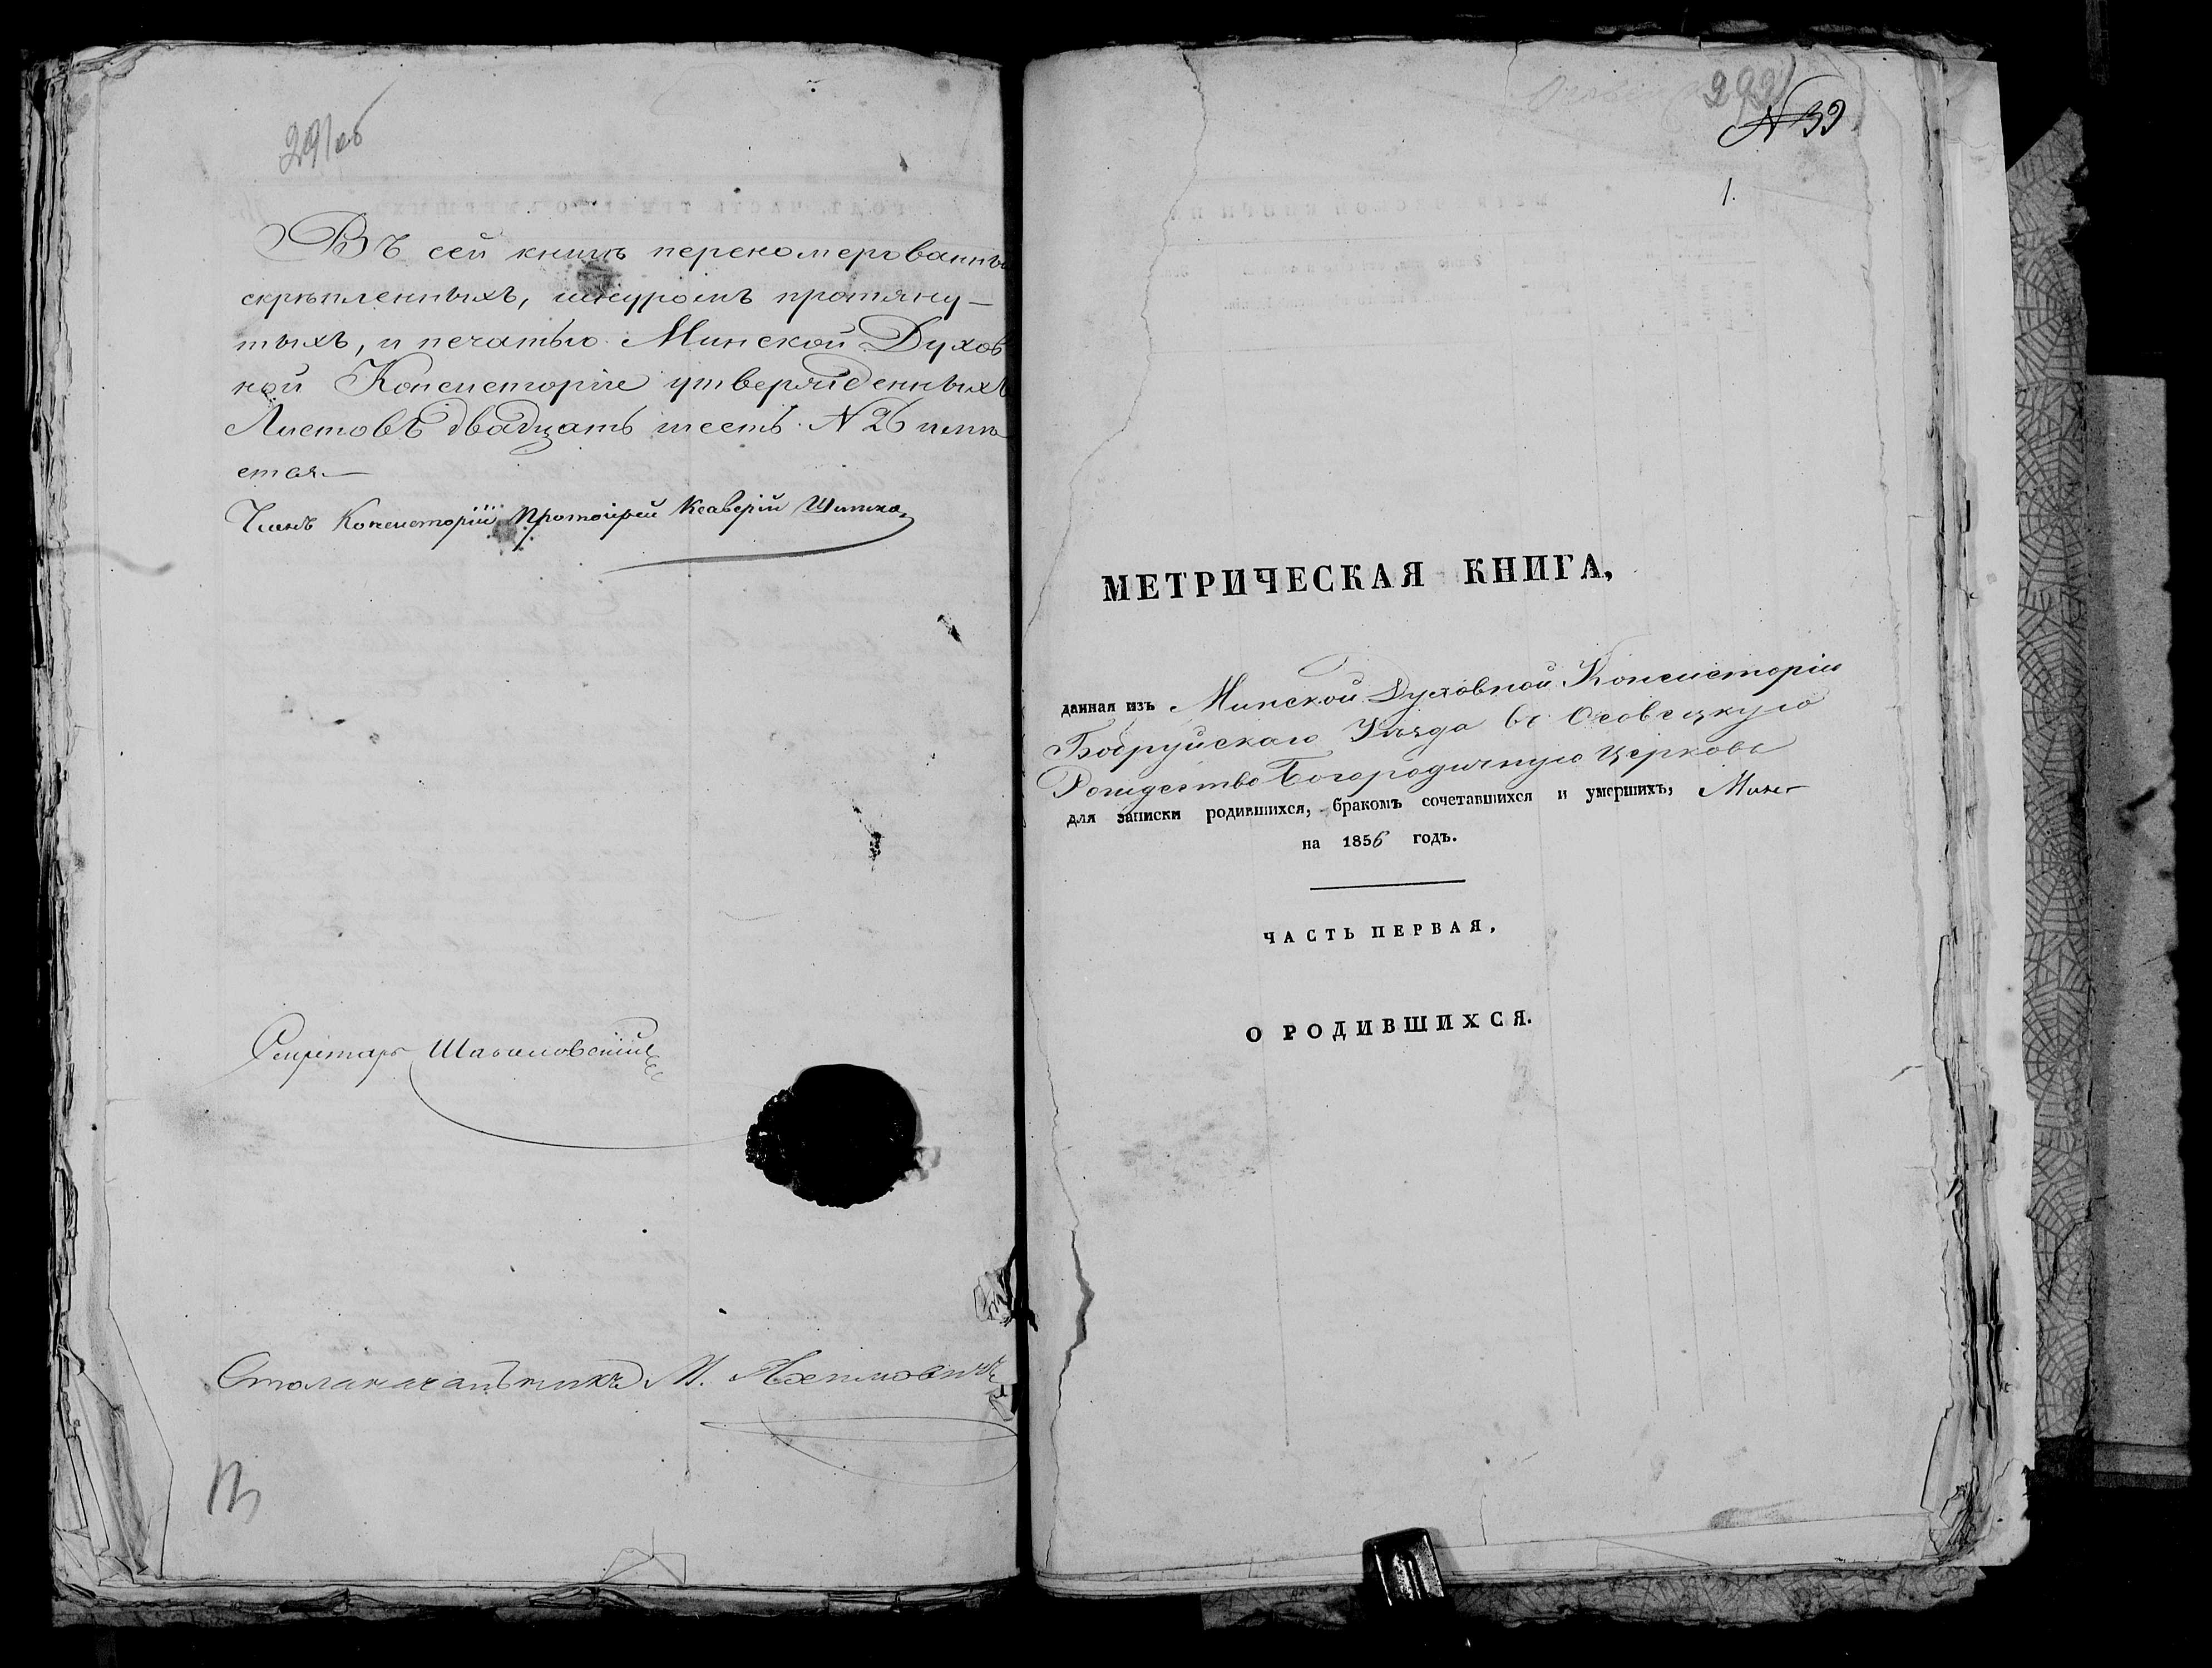 291 об
Въ сей книгѣ переномерованны
скрѣпленныхъ, шнуромъ протяну-
тыхъ, и печатью Минской Духов
ной Консисторіи утвержденныхъ
Листовъ двадцать шесть № 26 имѣ
ется.
Членъ Консисторіи Протоіерей Ксаверій
Секретарь
Столоначальникъ М.
292
№ 39
1.
МЕТРИЧЕСКАЯ КНИГА,
данная изъ Минской Духовной Консисторіи
Бобруйскаго Уѣзда въ Осовецкую
Рождество Богородичную Церковь
для записки родившихся, бракомъ сочетавшихся и умершихъ,
на 1856 годъ.
ЧАСТЬ ПЕРВАЯ,
О РОДИВШИХСЯ.